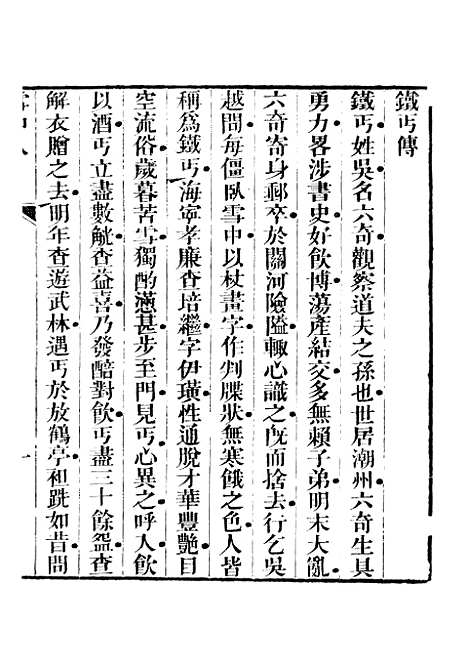 鐵丐傳
鐵丐姓吳名六奇觀察道夫之孫也世居潮州六奇生具
勇力畧涉書史好飲博蕩產結交多無賴子弟明末大亂
六奇寄身郵卒於關河險隘輒心識之旣而捨去行乞吳
越間每僵臥雪中以杖畫字作判牒狀無寒餓之色人皆
稱爲鐵丐海寧孝廉查培繼字伊璜性通脫才華豐艷目
空流俗歲暮苦雪獨酌懣甚步至門見丐心異之呼人飲
以酒丐立盡數觥查益喜乃發醅對飲丐盡三十餘盌查
解衣贈之去明年查遊武林遇丐於放鶴亭袒跣如昔問
一